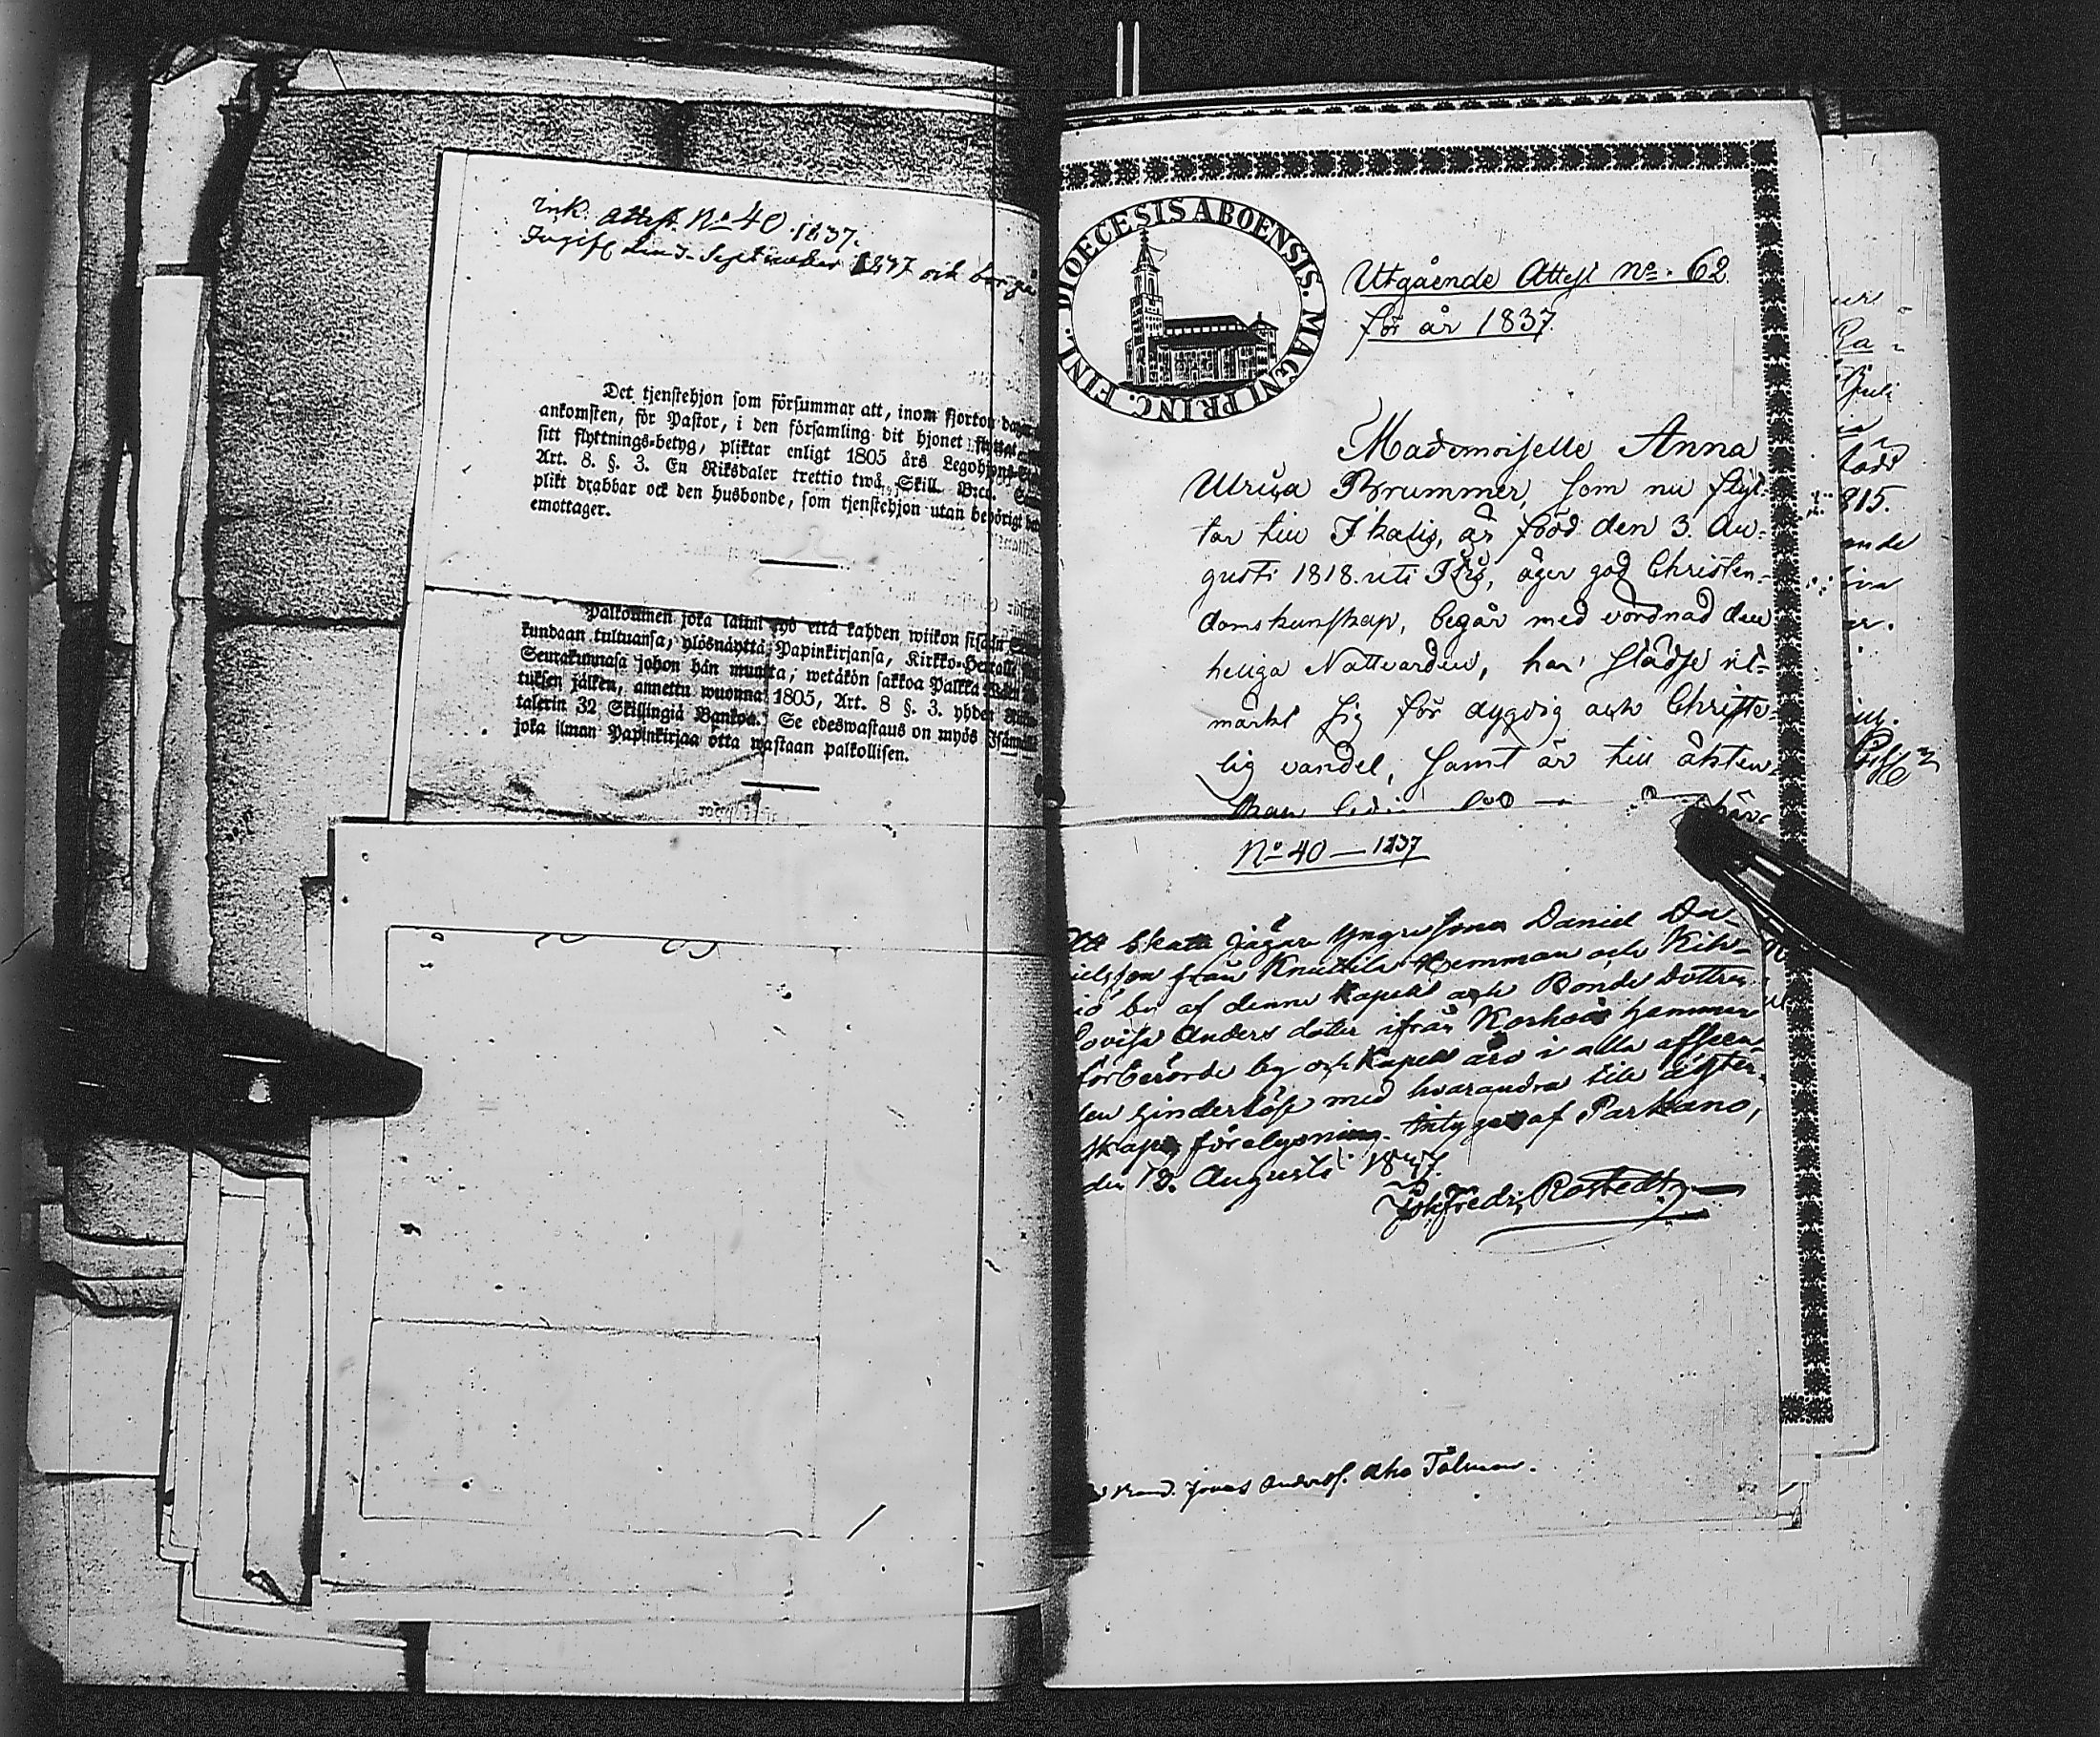 Ink. Attest. No 40. 1837.
Ingifv. den 3. September 1837 och bör
Det tjenstehjon som försummar att, inom fjorton
ankomsten, för Pastor, i den församling dit hjonet
sitt flyttnings-betyg, pliktar enligt 1805 års
Art. 8. §. 3. En Riksdaler trettio twå Skill. B:co.
plikt drabbar ock den husbonde, som tjenstehjon utan behörigt
emottager.
Palkollinen joka laimi lyö että kahden wiikon sisään
kundaan tultuansa, ylösnäyttä Papinkirjansa, Kirkko-Herralle
Seurakunnasa johon hän muutta; wetäkön sakkoa Palkka
tuksen jälken, annettu wuonna 1805, Art. 8 §. 3. yhden
talerin 32 Skillingiä Bankoa. Se edeswastaus on myös Isännällä
joka ilman Papinkirjaa otta wastaan palkollisen.
DIOECESIS ABOENSIS. MAGNI PRINC. FINL.
Utgående Attest No. 62
för år 1837.
Mademoiselle Anna
Ulrica Brummer, som nu flyt-
tar till Ikalis, är född den 3. Au-
gusti 1818. uti äger god Christen-
domskunskap, begår med vördnad den
heliga Nattvarden, har städse ut-
märkt sig för dygdig och Christe-
lig vandel, samt är till äkten-
No 40 — 1837
Att Skatte Jägare Yngre Sonen Daniel Da-
ielsson från Knuttila Hemman och Kih-
iö by af denne Kapell och Bonde Dottren
Lovisa Anders doter ifrån Korhois Hemman
förberörde by och Kapell äro i alla afseen-
den hinderlöse med hvarandra till ägten-
skaps förelysning. Intygas af Parkano,
den 12. Augusti 1837.
Joh. Fredr. Rostedt
Jonas Anderss. Aho Tålman.